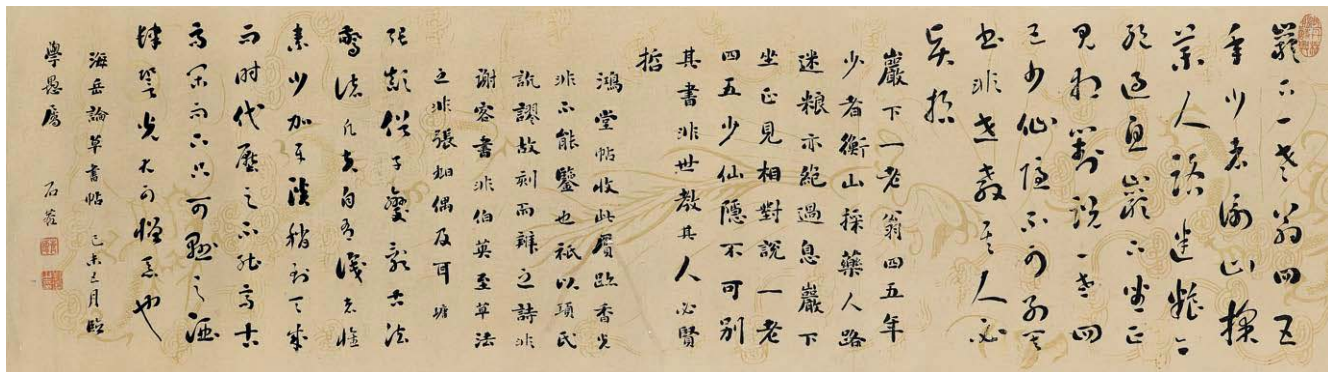 巖下一老翁四五
年少者衡山採
藥人路迷粮亦
絶過息巖下坐正
見相對説一老四
五少仙隱不可別其
書非世教其人必
賢哲
巖下一老翁四五年
少者衡山採藥人路
迷粮亦絶過息巖下
坐正見相對說一老
四五少仙隱不可別
其書非世教其人必賢
哲
鴻堂帖收此贋跡香光
非不能鑒也祇以項氏
訛謬故刻而辨之詩非
謝客書非伯英至草法
之非張姻偶及耳 墉
張顛俗子變亂古法
驚諸凡夫自有識者懷
素少加平淡稍到天成
而時代壓之不能高古
高閑而下只可懸之酒
肆辯光尤可憎惡也
海岳論草書帖 己未三月臨
學愚屬 石菴